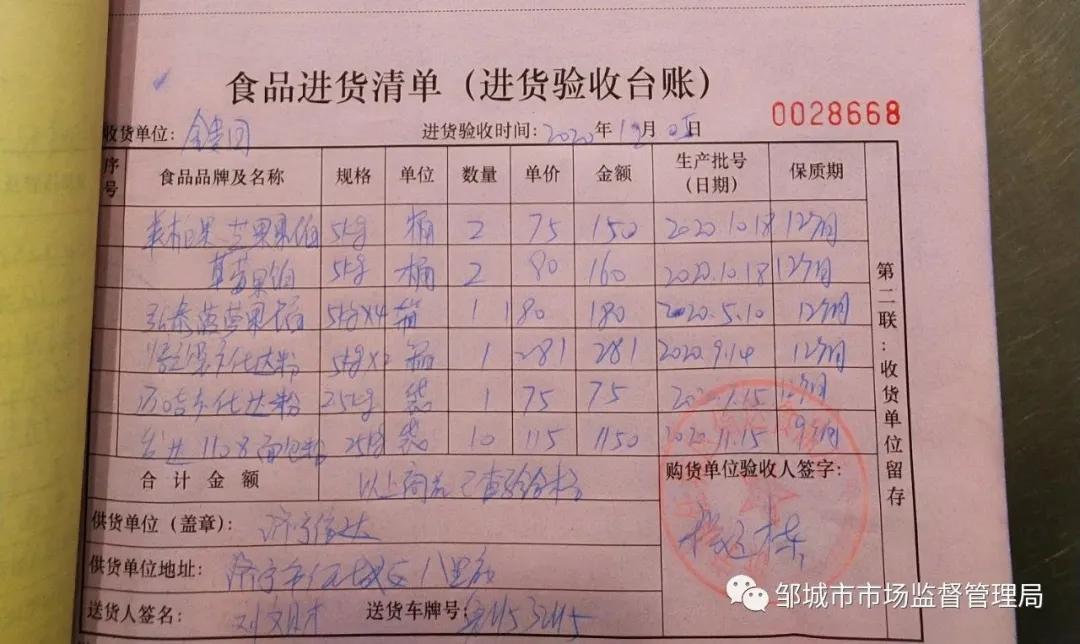 食品进货清单（进货验收台账）
0028668
收货单位：
进货验收时间：2020年12月05日
序号 食品品牌及名称 规格 单位 数量 单价 金额 生产批号（日期） 保质期
苹果果馅 5kg 桶 2 75 150 2020.10.18 12个月
草莓果馅 5kg 桶 2 80 160 2020.10.18 12个月
菠萝果馅 5kg×4 箱 1 180 180 2020.5.10 12个月
卡仕达粉 5kg×2 箱 1 281 281 2020.9.14 12个月
卡仕达粉 25kg 袋 1 75 75 12个月
1108面包粉 25kg 袋 10 115 1150 2020.11.15 个月
合计金额 以上商品已查验合格
购货单位验收人签字：
供货单位（盖章）：济宁信达
供货单位地址：济宁市任城区八里
送货人签名：刘文 送货车牌号：
第二联：收货单位留存
邹城市市场监督管理局